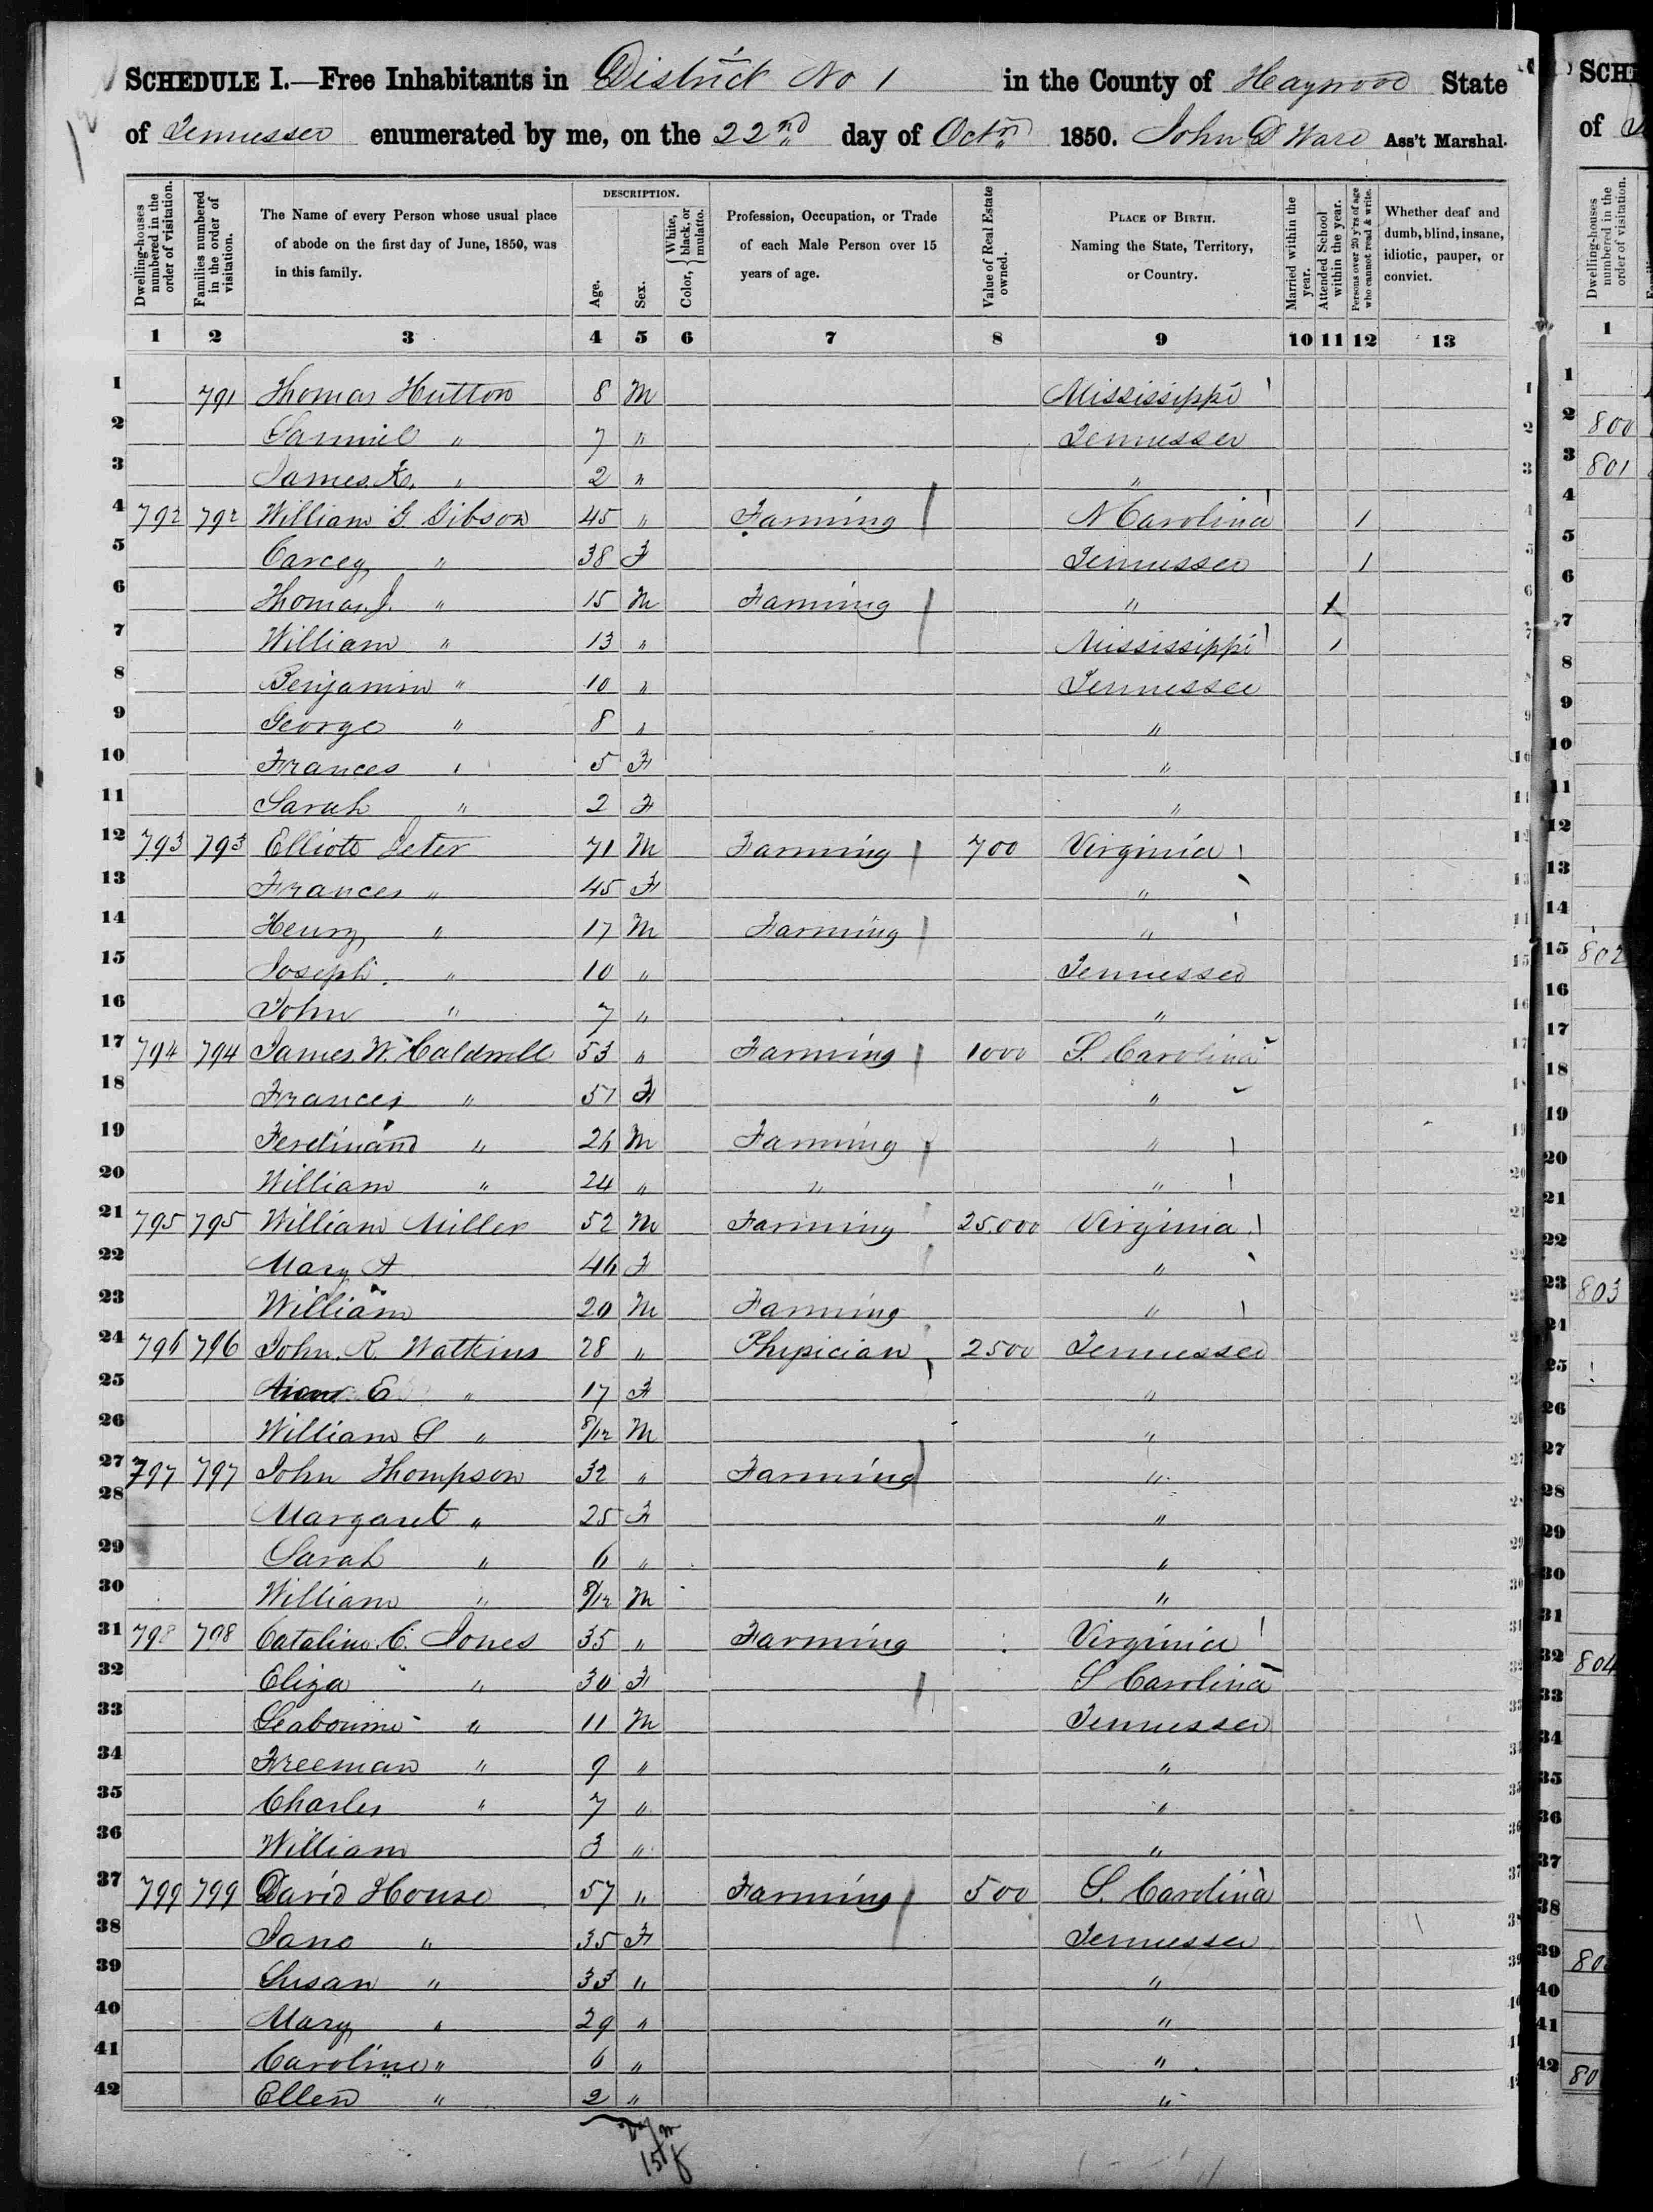 SCHEDULE I.—Free Inhabitants in District No 1 in the County of Haywood State
of Tennessee enumerated by me, on the 22nd day of Octr 1850. John D Ware Ass't Marshal.
Dwelling-houses numbered in the order of visitation.
Families numbered in the order of visitation.
The Name of every Person whose usual place of abode on the first day of June, 1850, was in this family.
DESCRIPTION.
Age.
Sex.
Color, { White, black, or mulatto.
Profession, Occupation, or Trade of each Male Person over 15 years of age.
Value of Real Estate owned.
PLACE OF BIRTH. Naming the State, Territory, or Country.
Married within the year.
Attended School within the year.
Persons over 20 y'rs of age who cannot read & write.
Whether deaf and dumb, blind, insane, idiotic, pauper, or convict.
1 2 3 4 5 6 7 8 9 10 11 12 13
1 791 Thomas Hutton 8 M Mississippi 1
2 Samuel " 7 " Tennessee 2
3 James K. " 2 " " 3
4 792 792 William G Gibson 45 " Farming N Carolina 1 4
5 Carcey " 38 F Tennessee 1 5
6 Thomas J. " 15 M Farming " 1 6
7 William " 13 " Mississippi 1 7
8 Benjamin " 10 " Tennessee 8
9 George " 8 " " 9
10 Frances " 5 F " 10
11 Sarah " 2 F " 11
12 793 793 Elliott Jeter 71 M Farming 700 Virginia 12
13 Frances " 45 F " 13
14 Henry " 17 M Farming " 14
15 Joseph " 10 " Tennessee 15
16 John " 7 " " 16
17 794 794 James W Caldwell 53 " Farming 1000 S. Carolina 17
18 Frances " 51 F " 18
19 Ferdinand " 26 M Farming " 19
20 William " 24 " " " 20
21 795 795 William Miller 52 M Farming 25.000 Virginia 21
22 Mary A 46 F " 22
23 William 20 M Farming " 23
24 796 796 John R. Watkins 28 " Phipician 2500 Tennessee 24
25 E " 17 F " 25
26 William S " 8/12 M " 26
27 797 797 John Thompson 32 " Farming " 27
28 Margaret " 25 F " 28
29 Sarah " 6 " " 29
30 William " 8/12 M " 30
31 798 798 Catalina C. Jones 35 " Farming Virginia 31
32 Eliza " 30 F S Carolina 32
33 Seabourne " 11 M Tennessee 33
34 Freeman " 9 " " 34
35 Charles " 7 " " 35
36 William 3 " " 36
37 799 799 David House 57 " Farming 500 S. Carolina 37
38 Jane " 35 F Tennessee 38
39 Susan " 33 " " 39
40 Mary " 29 " " 40
41 Caroline " 6 " " 41
42 Ellen " 2 " " 42
15 f
SCHE
of
Dwelling-houses numbered in the order of visitation.
1
1
2 800
3 801
4
5
6
7
8
9
10
11
12
13
14
15 802
16
17
18
19
20
21
22
23 803
24
25
26
27
28
29
30
31
32 804
33
34
35
36
37
38
39 80
40
41
42 80